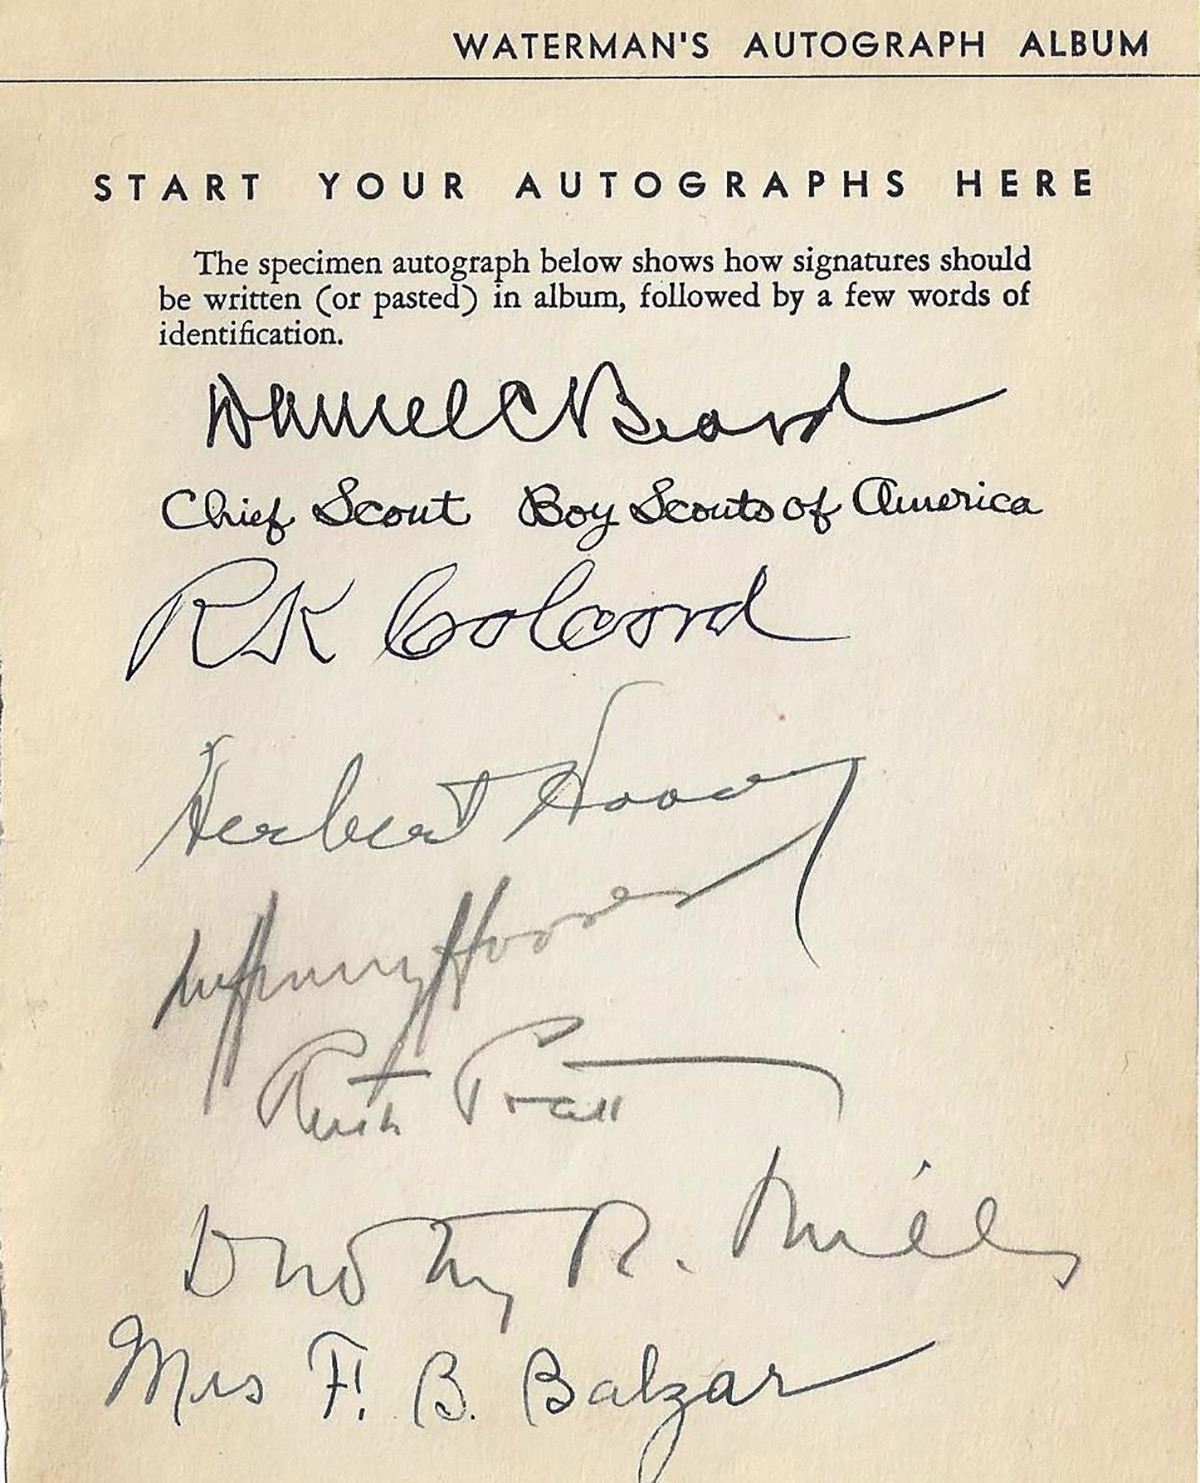 WATERMAN'S AUTOGRAPH ALBUM
START YOUR AUTOGRAPHS HERE
The specimen autograph below shows how signatures should
be written (or pasted) in album, followed by a few words of
identification.
Daniel C Beard
Chief Scout Boy Scouts of America
RK Colcord
Herbert Hoover
Lou Henry Hoover
Ruth Pratt
Dorothy R. Mills
Mrs F. B. Balzar